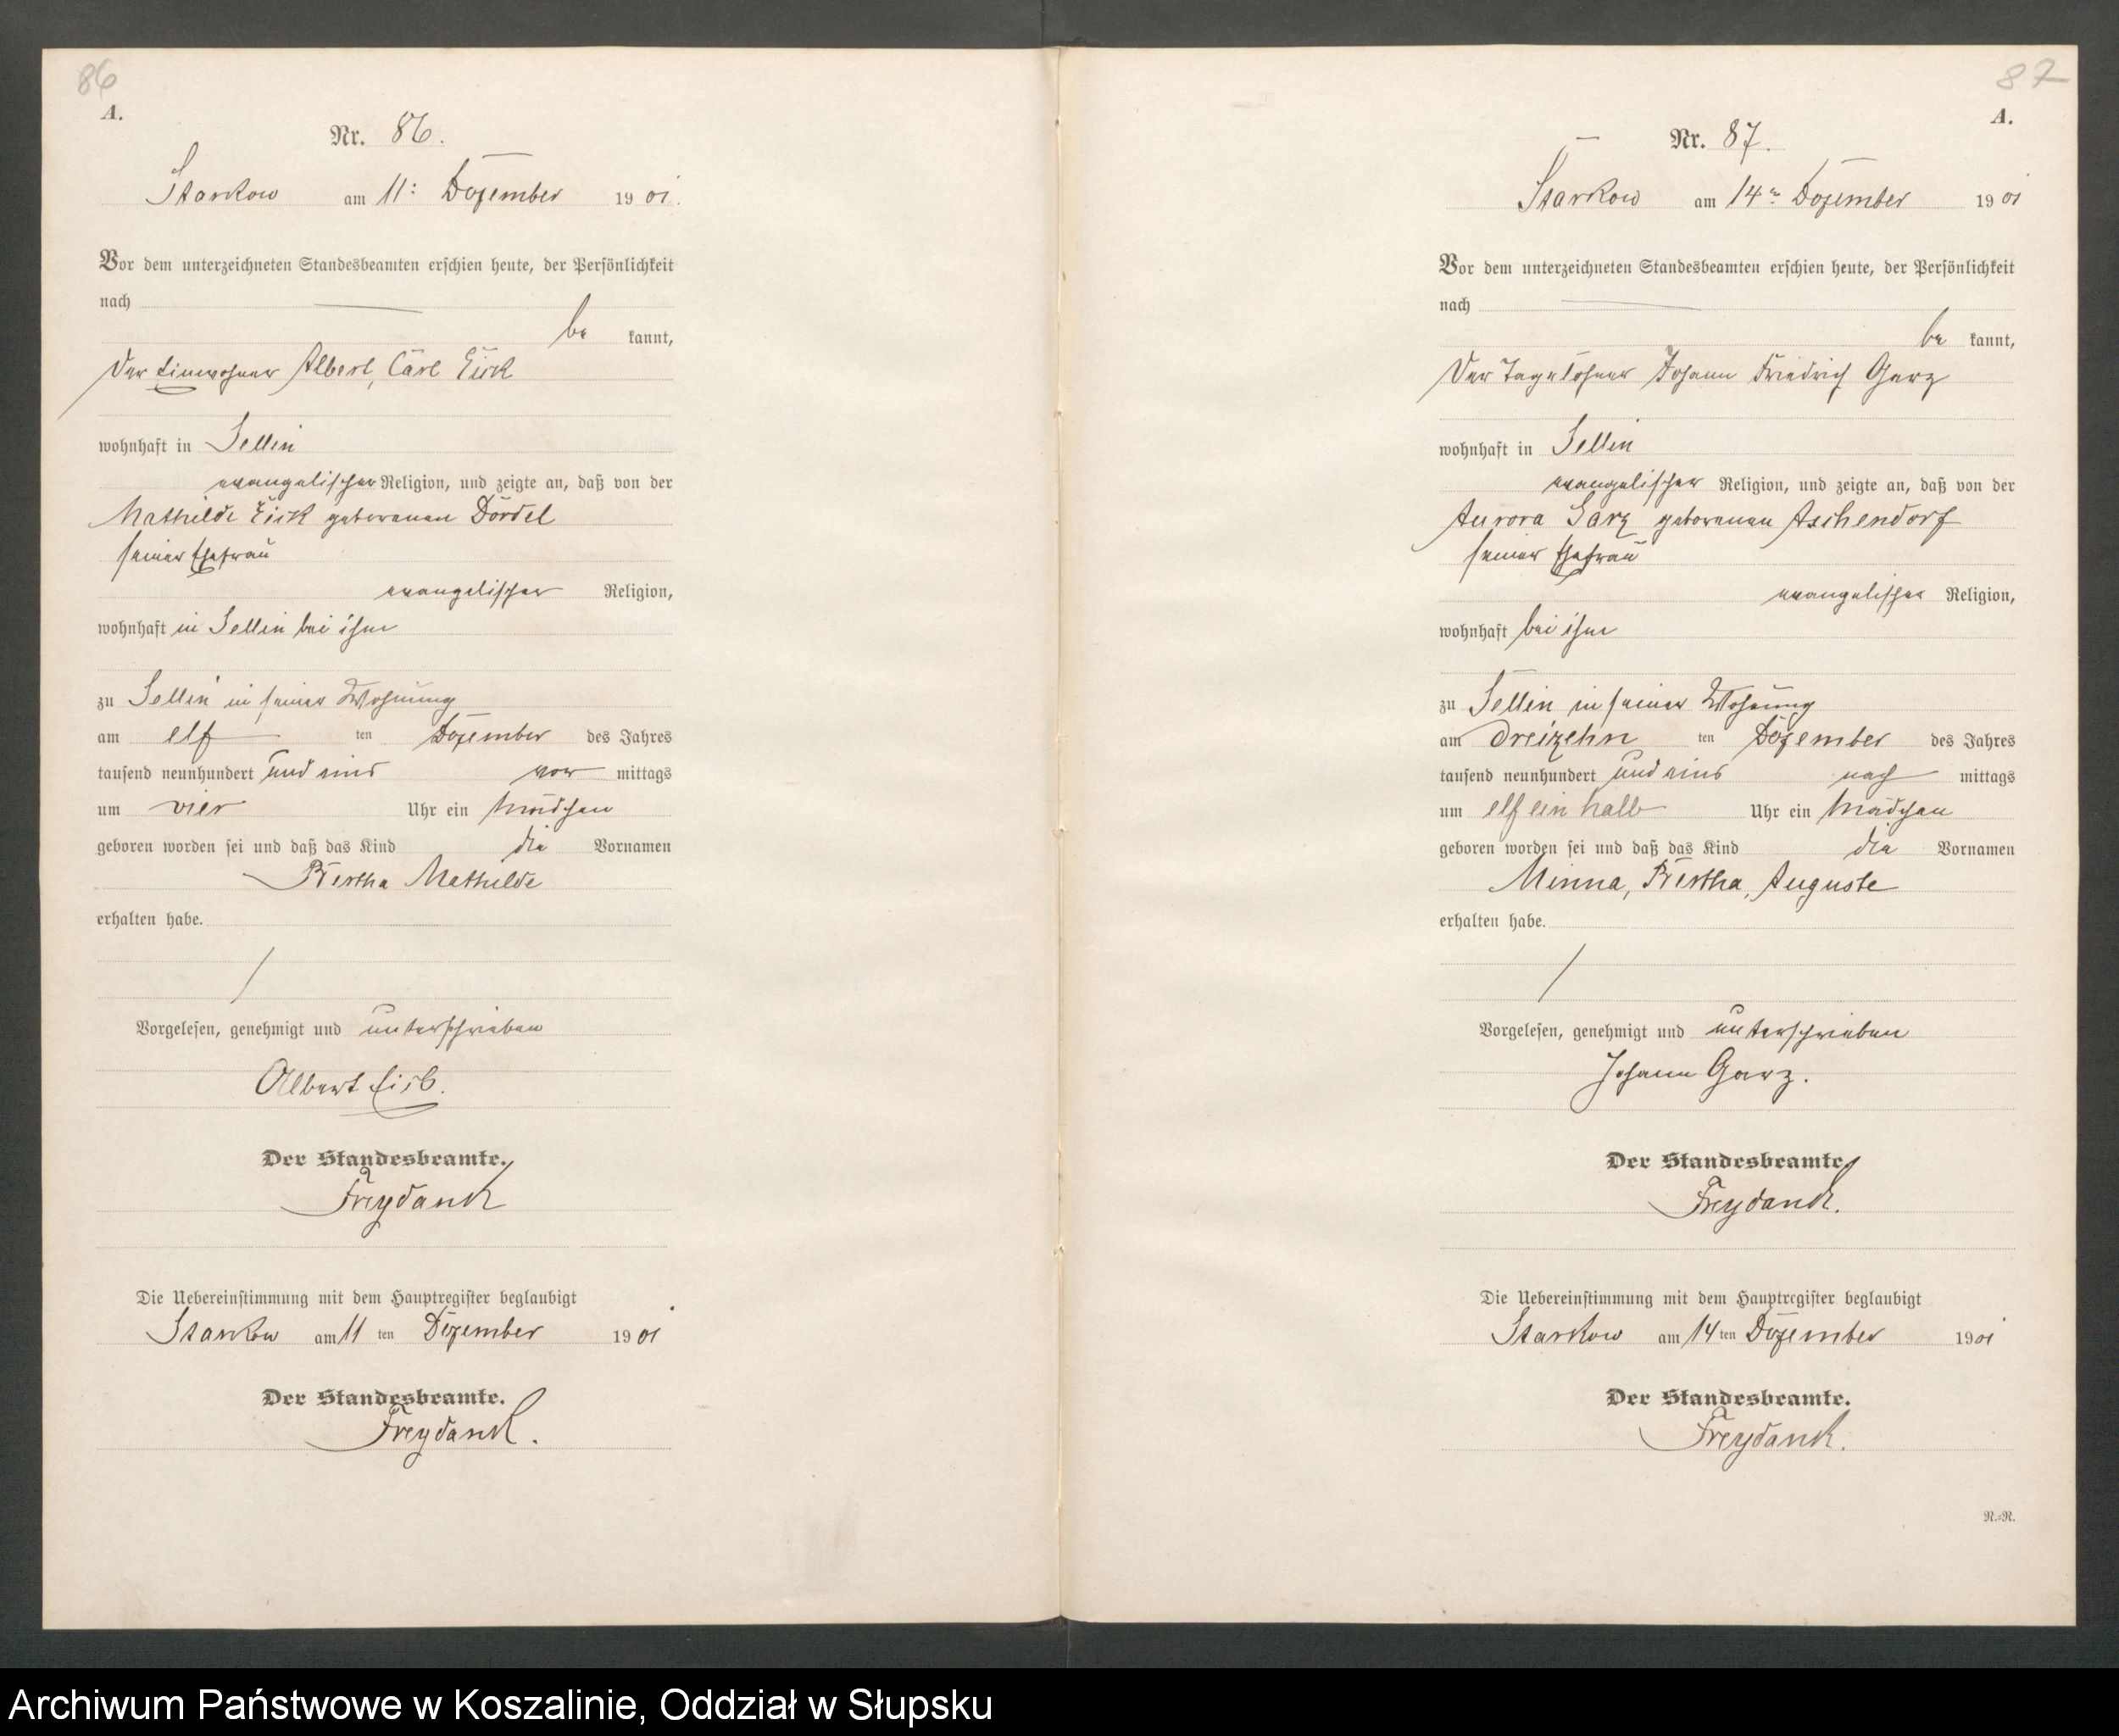 86
A.
Nr. 86.
Starkow am 11. Dezember 1901.
Vor dem unterzeichneten Standesbeamten erschien heute, der Persönlichkeit
nach
be kannt,
Der Einwohner Albert, Carl Eick
wohnhaft in Sellin
evangelischer Religion, und zeigte an, daß von der
Mathilde Eick geborenen Dördel
seiner Ehefrau
evangelischer Religion,
wohnhaft in Sellin bei ihm
zu Sellin in seiner Wohnung
am elf ten Dezember des Jahres
tausend neunhundert und eins vor mittags
um vier Uhr ein Mädchen
geboren worden sei und daß das Kind die Vornamen
Bertha Mathilde
erhalten habe.
Vorgelesen, genehmigt und unterschrieben
Albert Eick.
Der Standesbeamte.
Freydank
Die Uebereinstimmung mit dem Hauptregister beglaubigt
Starkow am 11 ten Dezember 1901
Der Standesbeamte.
Freydank.
87
A.
Nr. 87.
Starkow am 14. Dezember 1901
Vor dem unterzeichneten Standesbeamten erschien heute, der Persönlichkeit
nach
be kannt,
Der Tagelöhner Johann Friedrich Garz
wohnhaft in Sellin
evangelischer Religion, und zeigte an, daß von der
Aurora Garz geborenen Aschendorf
seiner Ehefrau
evangelischer Religion,
wohnhaft bei ihm
zu Sellin in seiner Wohnung
am dreizehn ten Dezember des Jahres
tausend neunhundert und eins nach mittags
um elf ein halb Uhr ein Mädchen
geboren worden sei und daß das Kind die Vornamen
Minna, Bertha, Auguste
erhalten habe.
Vorgelesen, genehmigt und unterschrieben
Johann Garz.
Der Standesbeamte.
Freydank.
Die Uebereinstimmung mit dem Hauptregister beglaubigt
Starkow am 14 ten Dezember 1901
Der Standesbeamte.
Freydank.
R.=R.
Archiwum Państwowe w Koszalinie, Oddział w Słupsku